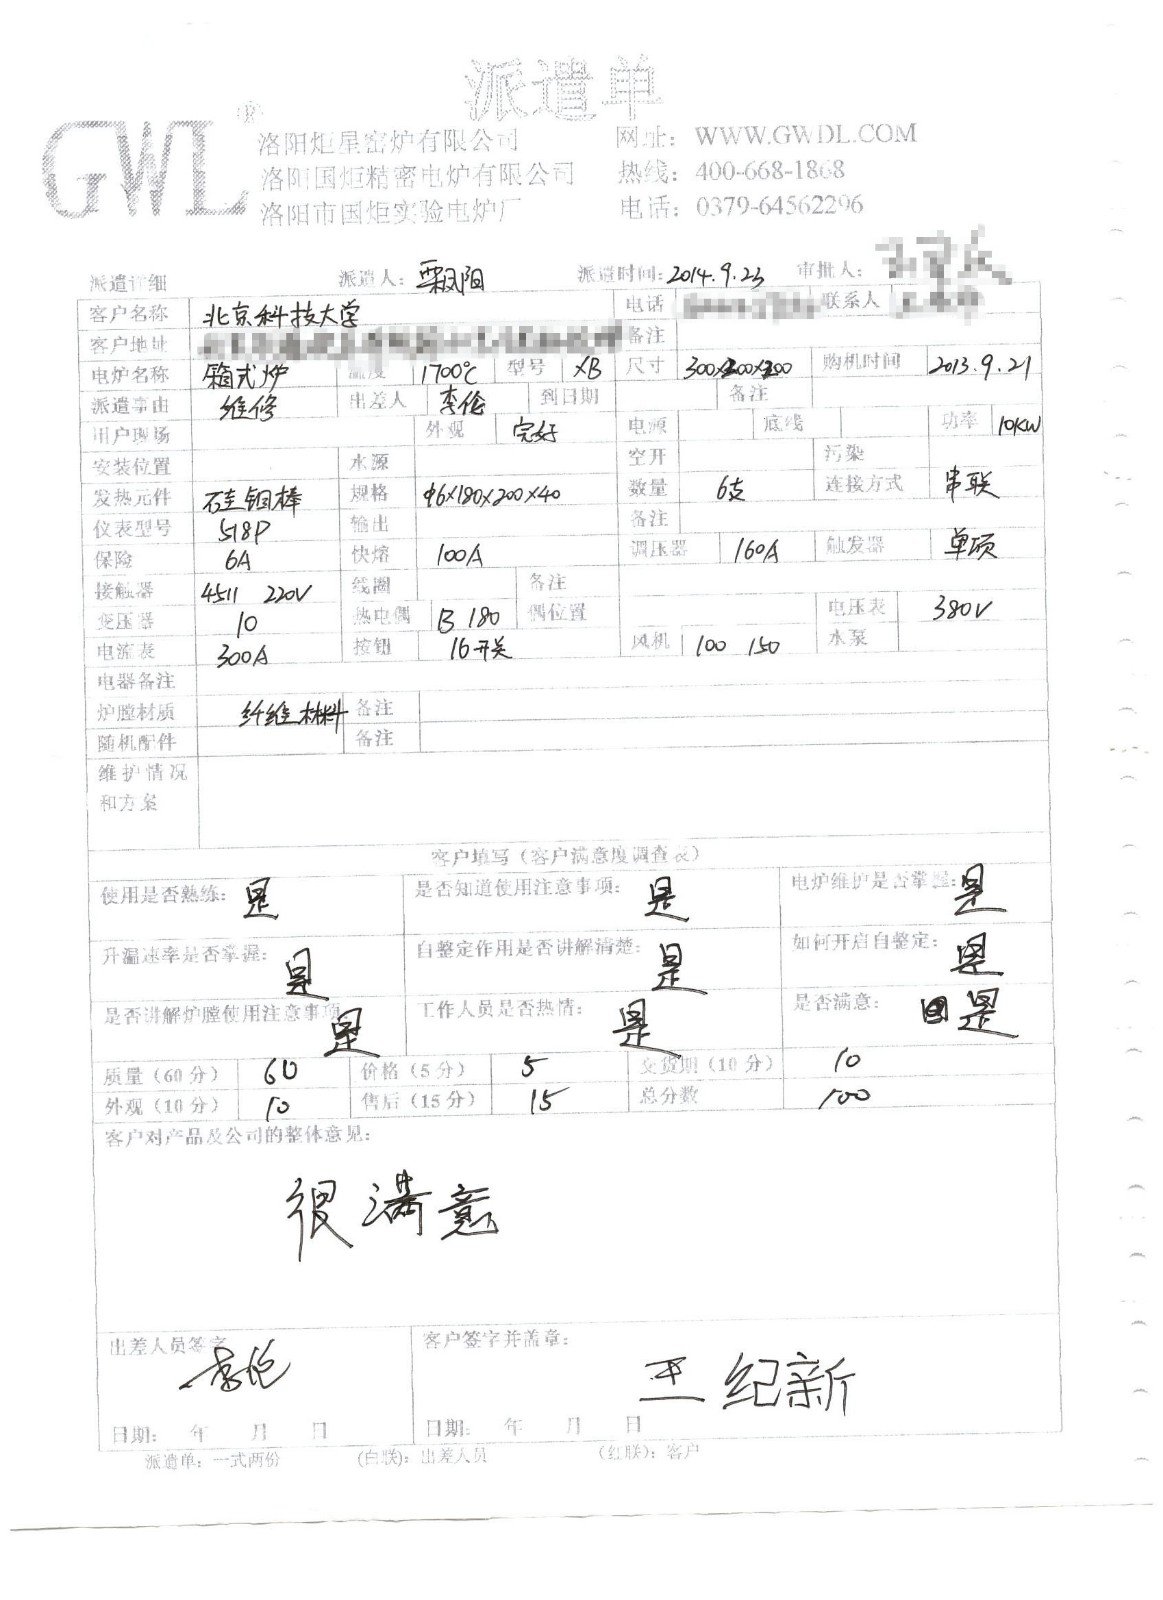 派遣单
GWL®
洛阳炬星窑炉有限公司 网址: WWW.GWDL.COM
洛阳国炬精密电炉有限公司 热线: 400-668-1868
洛阳市国炬实验电炉厂 电话: 0379-64562296
派遣详细 派遣人: 阳 派遣时间: 2014.9.23 审批人:
客户名称 北京科技大学 电话 联系人
客户地址 备注
电炉名称 箱式炉 温度 1700℃ 型号 XB 尺寸 300x200x200 购机时间 2013.9.21
派遣事由 维修 出差人 李伦 到日期 备注
用户现场 外观 完好 电源 底线 功率 10KW
安装位置 水源 空开 污染
发热元件 硅钼棒 规格 φ6x180x200x40 数量 6支 连接方式 串联
仪表型号 518P 输出 备注
保险 6A 快熔 100A 调压器 160A 触发器 单项
接触器 4511 220V 线圈 备注
变压器 10 热电偶 B 180 偶位置 电压表 380V
电流表 300A 按钮 16开关 风机 100 150 水泵
电器备注
炉膛材质 纤维材料 备注
随机配件 备注
维护情况
和方案
客户填写(客户满意度调查表)
使用是否熟练: 是 是否知道使用注意事项: 是 电炉维护是否掌握: 是
升温速率是否掌握: 是 自整定作用是否讲解清楚: 是 如何开启自整定: 是
是否讲解炉膛使用注意事项: 是 工作人员是否热情: 是 是否满意: 是
质量(60分) 60 价格(5分) 5 交货期(10分) 10
外观(10分) 10 售后(15分) 15 总分数 100
客户对产品及公司的整体意见:
很满意
出差人员签字 李伦 客户签字并盖章:
王纪新
日期: 年 月 日 日期: 年 月 日
派遣单: 一式两份 (白联): 出差人员 (红联): 客户